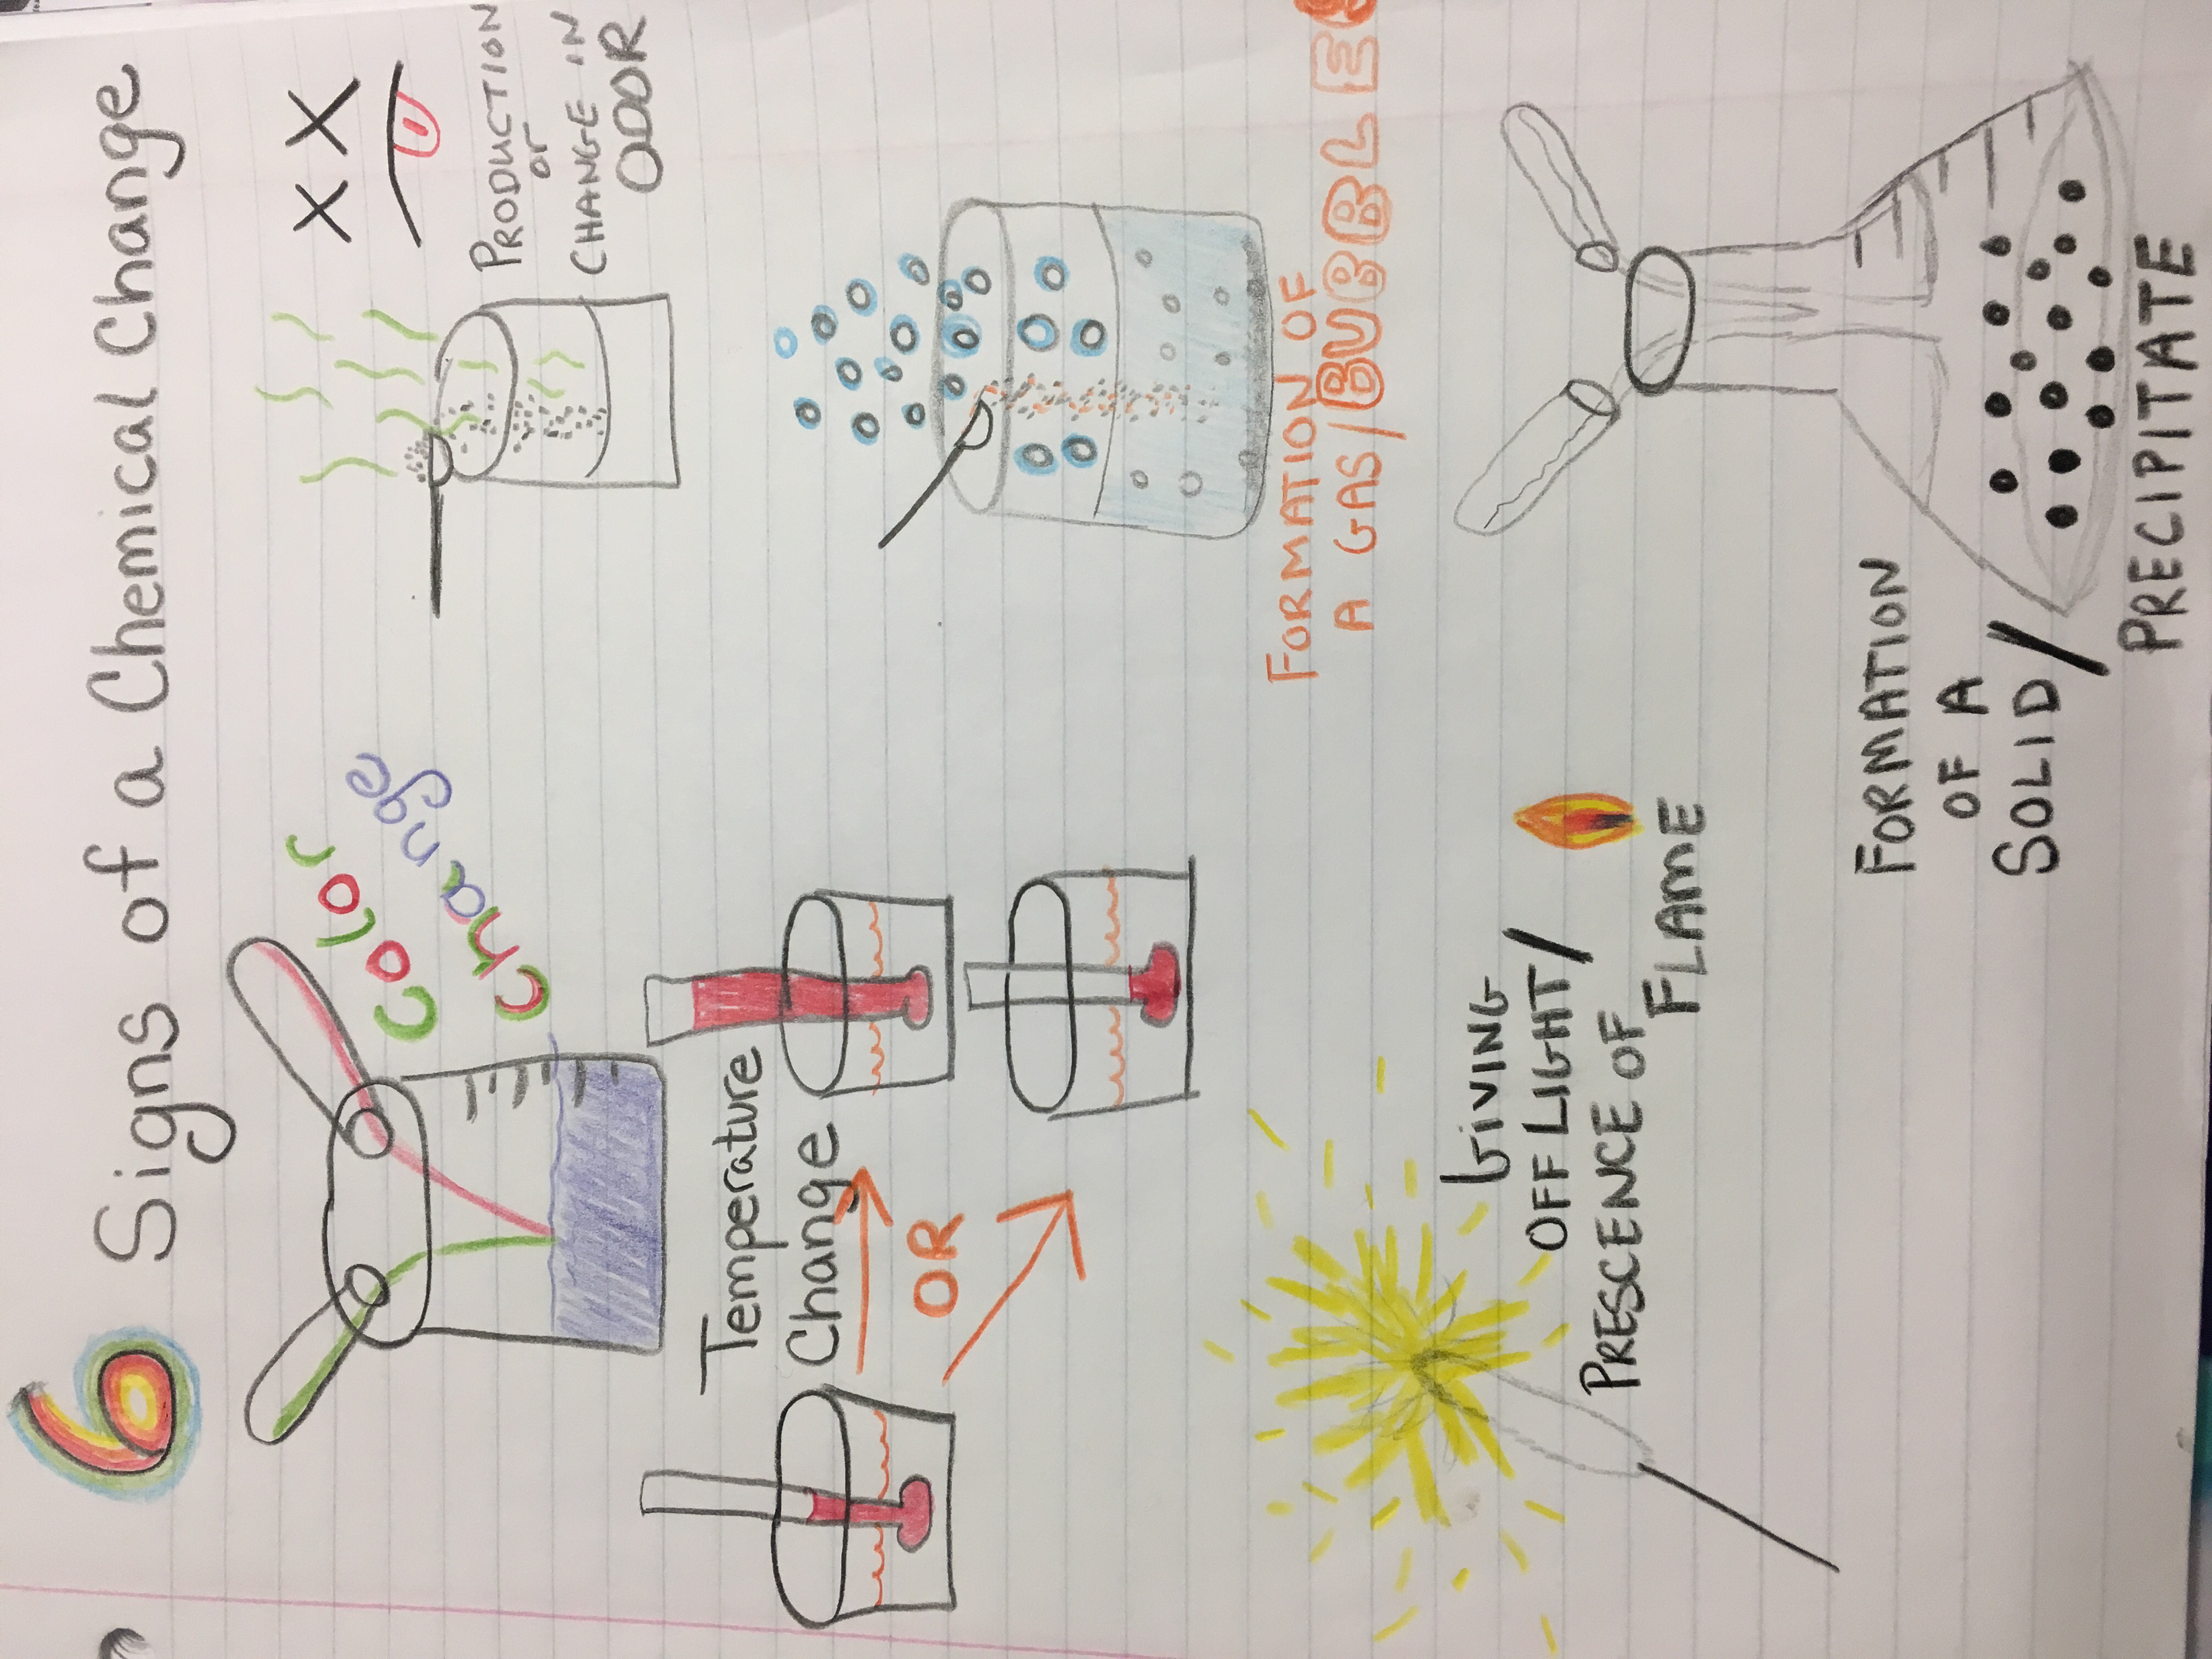 6 Signs of a Chemical Change
Color
Change
PRODUCTION
or
CHANGE IN
ODOR
Temperature
Change
OR
FORMATION OF
A GAS/BUBBLES
GIVING
OFF LIGHT/
PRESCENCE OF
FLAME
FORMATION
OF A
SOLID/
PRECIPITATE